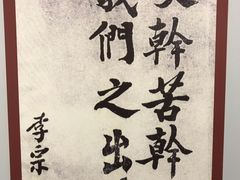 幹苦幹
我們之出
李宗